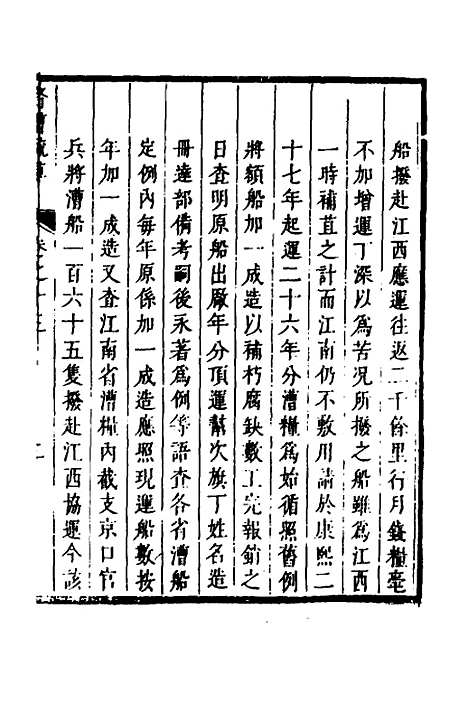 船撥赴江西應運往返二千餘里行月錢糧毫
不加增運丁深以爲苦况所撥之船雖爲江西
一時補苴之計而江南仍不敷用請於康熙二
十七年起運二十六年分漕糧爲始循照舊例
將額船加一成造以補朽腐缺數工完報銷之
日查明原船出厰年分頂運幫次旗丁姓名造
冊達部備考嗣後永著爲例等語查各省漕船
定例內每年原係加一成造應照現運船數按
年加一成造又查江南省漕糧內截支京口官
兵將漕船一百六十五隻撥赴江西協運今該